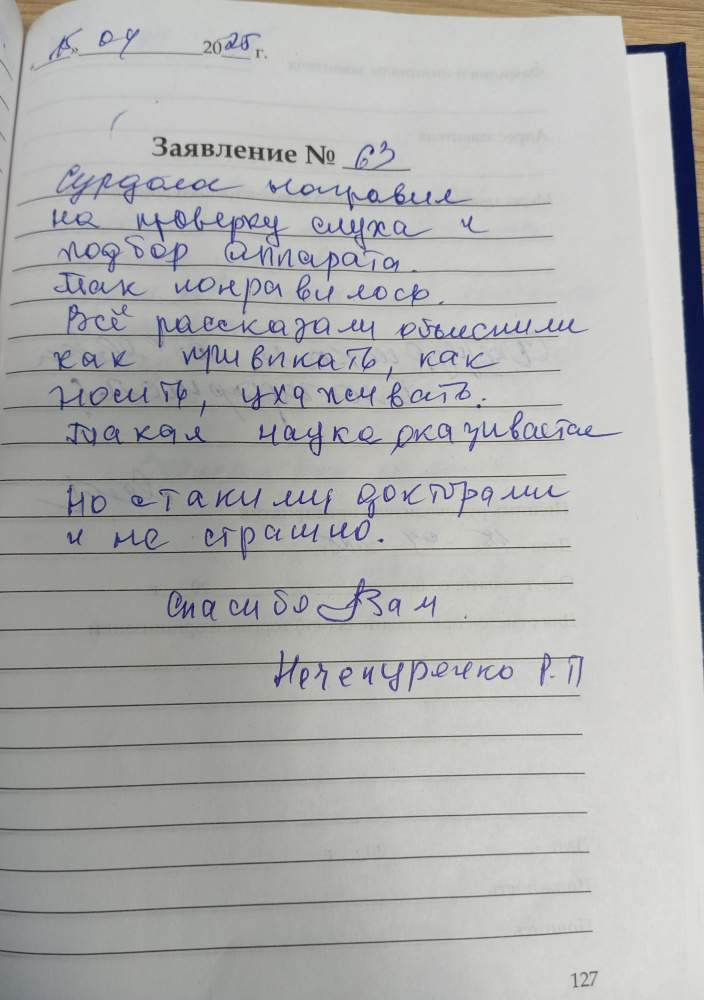 15» 04 2025 г.
Заявление № 63
Сурдолог направил
на проверку слуха и
подбор аппарата.
Так понравилось.
Всё рассказали объяснили
как привыкать, как
носить, ухаживать.
Такая наука оказывается
но с такими докторами
и не страшно.
Спасибо Вам
Нечепуренко Р.П
127